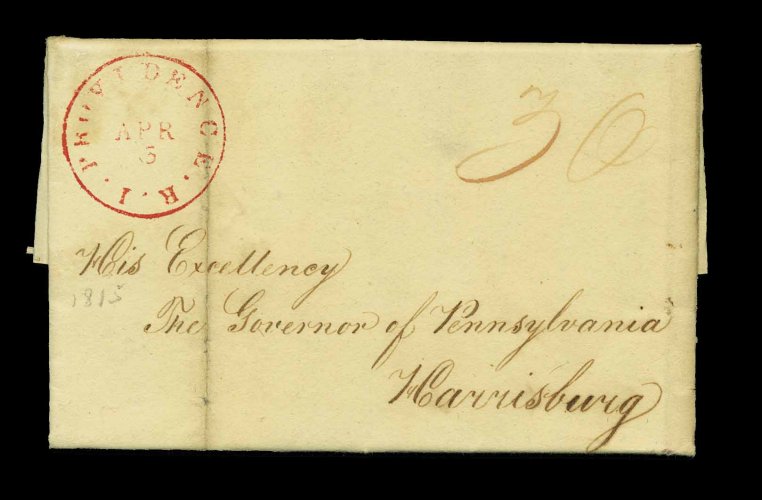 PROVIDENCE. R. I.
APR
5
36
His Excellency
1815
The Governor of Pennsylvania
Harrisburg